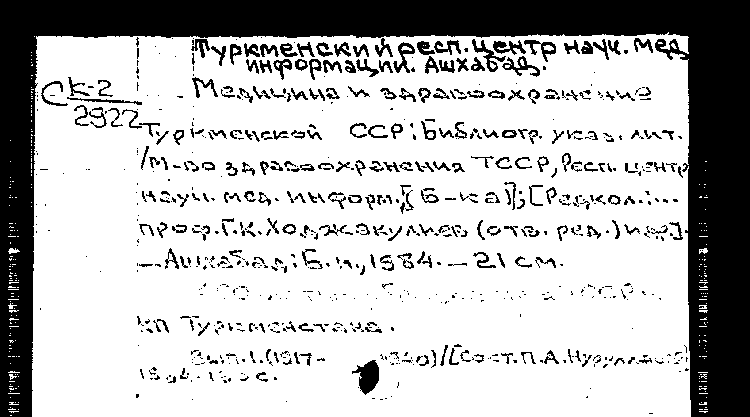 Туркменский респ. центр науч. мед.
информации. Ашхабад.
С К-2
2922
Медицина и здравоохранение
Туркменской ССР: Библиогр. указ. лит.
/М-во здравоохранения ТССР, Респ. центр
науч. мед. информ., [Б-ка]; [Редкол.:...
проф. Г.К. Ходжакулиев (отв. ред.) и др.].
— Ашхабад: Б.и., 1984. — 21 см.
КП Туркменстана.
Вып. 1. (1917- 1940)/[Сост. П.А.